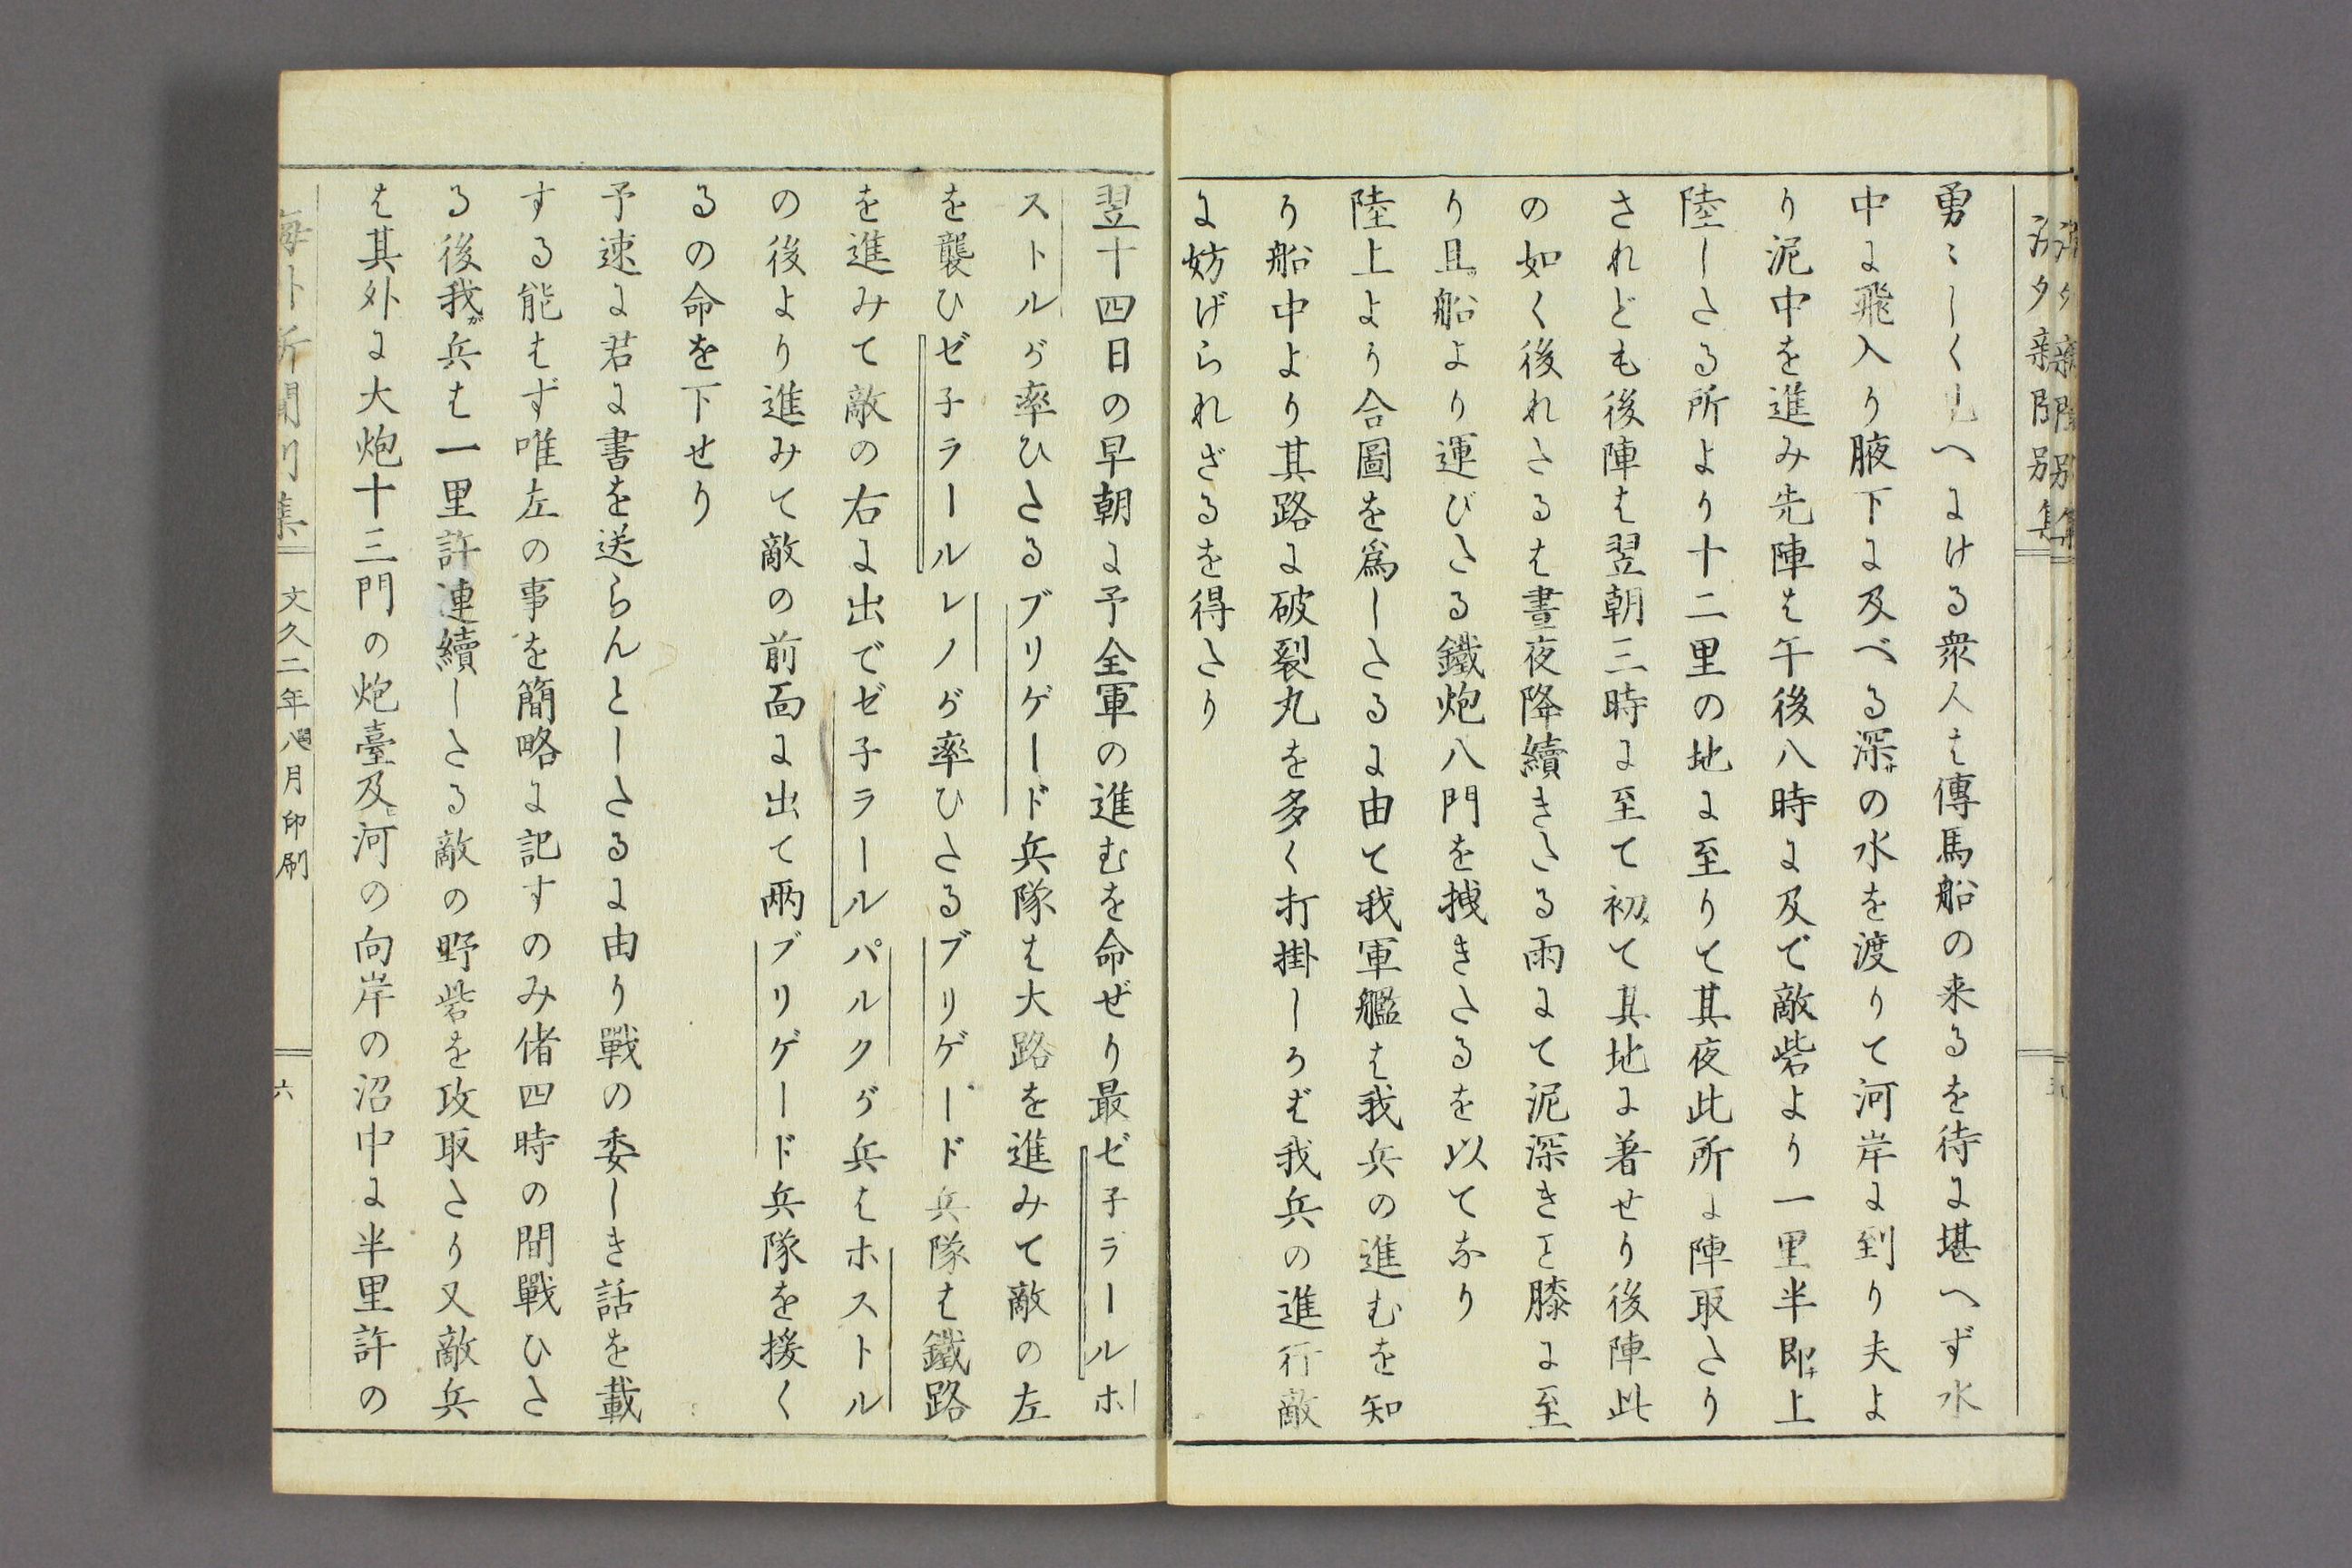 勇〻しく見へにける衆人は傳馬船の来るを待に堪へず水
中に飛入り腋下に及べる深サの水を渡りて河岸に到り夫よ
り泥中を進み先陣は午後八時に及で敵砦より一里半即チ上
陸したる所より十二里の地に至りて其夜此所に陣取たり
されども後陣は翌朝三時に至て初メて其地に着せり後陣此
の如く後れたるは晝夜降續きたる雨にて泥深きこと膝に至
り且ツ船より運びたる鐵炮八門を拽きたるを以てなり
陸上より合圖を爲したるに由て我軍艦は我兵の進むを知
り船中より其路に破裂丸を多く打掛しらば我兵の進行敵
に妨げられざるを得たり
翌十四日の早朝に予全軍の進むを命ぜり最ゼ子ラールホ
ストルが率ひたるブリゲード兵隊は大路を進みて敵の左
を襲ひゼ子ラールレノが率ひたるブリゲード兵隊は鐵路
を進みて敵の右に出でゼ子ラールパルクが兵はホストル
の後より進みて敵の前面に出て兩ブリゲード兵隊を援く
るの命を下せり
予速に君に書を送らんとしたるに由り戰の委しき話を載
する能はず唯左の事を簡略に記すのみ偖四時の間戰ひた
る後我ガ兵は一里許連續したる敵の野砦を攻取たり又敵兵
は其外に大炮十三門の炮臺及ヒ河の向岸の沼中に半里許の
文久二年閏八月印刷
六